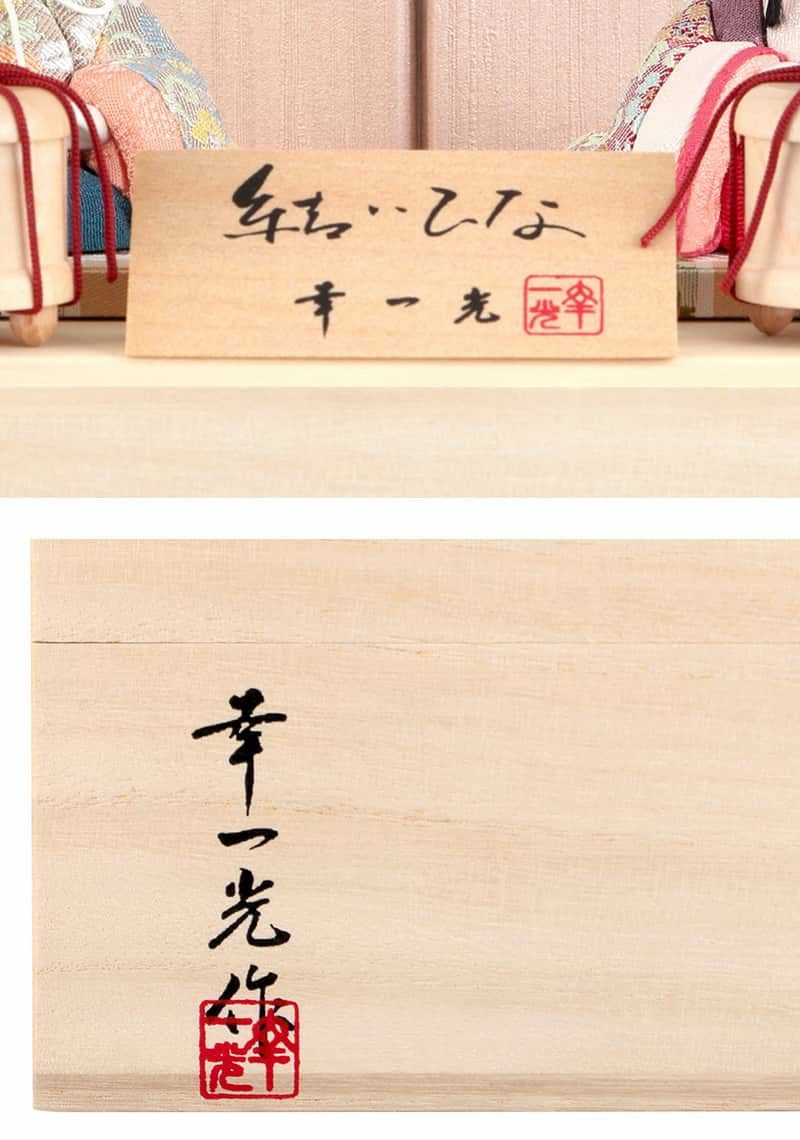 結いひな
幸一光
幸一光
幸一光作
幸一光